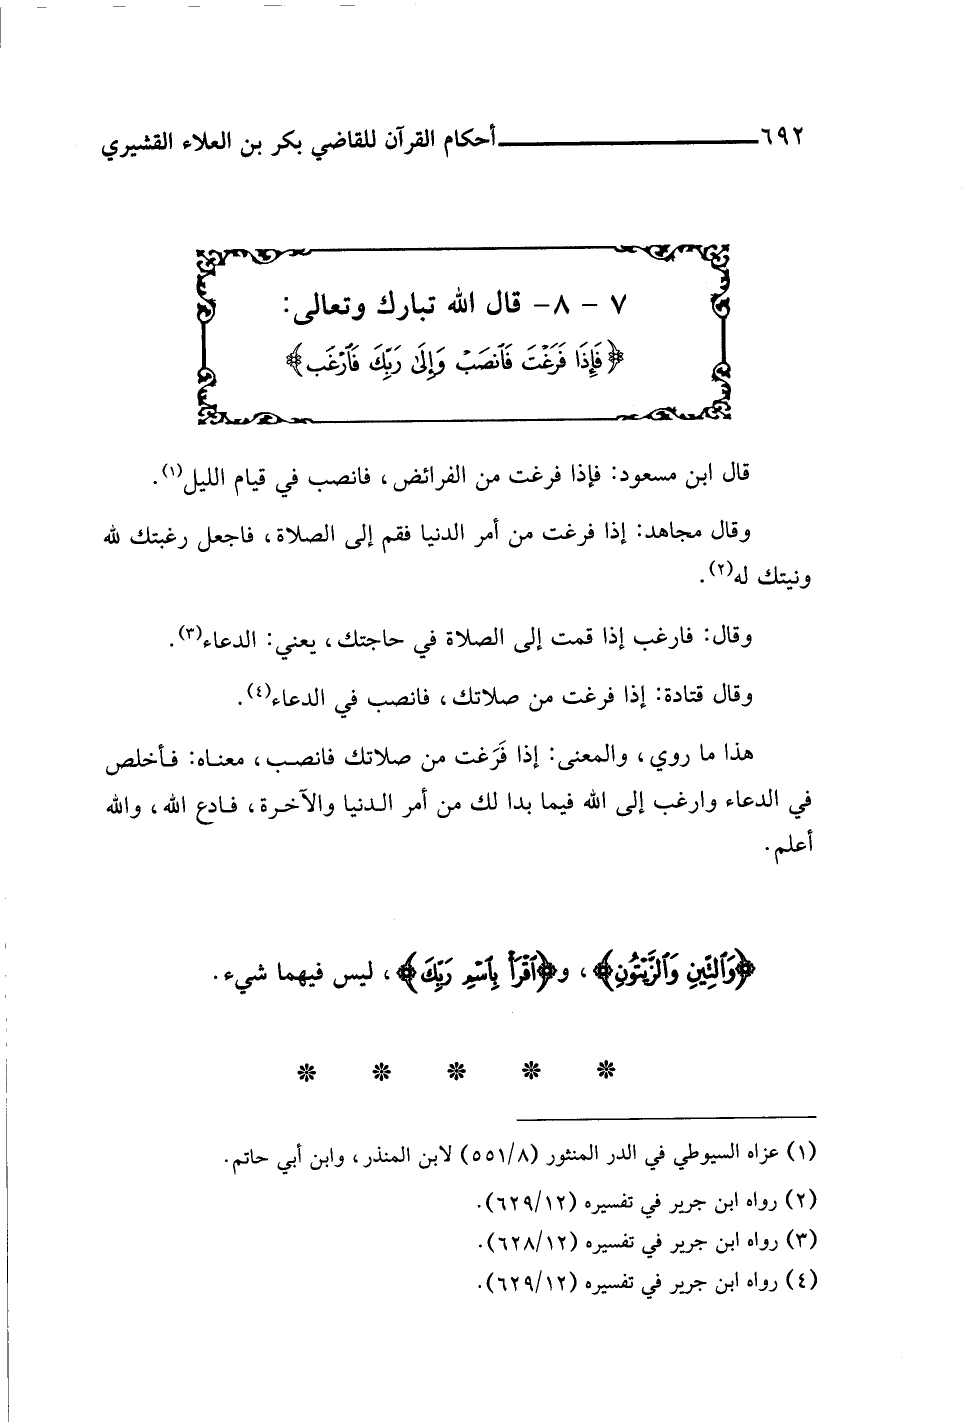 ٦٩٢ أحكام القرآن للقاضي بكر بن العلاء القشيري
٧ - ٨- قال الله تبارك وتعالى:
﴿فَإِذَا فَرَغْتَ فَٱنصَبْ وَإِلَىٰ رَبِّكَ فَٱرْغَب﴾
قال ابن مسعود: فإذا فرغت من الفرائض، فانصب في قيام الليل(١).
وقال مجاهد: إذا فرغت من أمر الدنيا فقم إلى الصلاة، فاجعل رغبتك لله
ونيتك له(٢).
وقال: فارغب إذا قمت إلى الصلاة في حاجتك، يعني: الدعاء(٣).
وقال قتادة: إذا فرغت من صلاتك، فانصب في الدعاء(٤).
هذا ما روي، والمعنى: إذا فَرَغت من صلاتك فانصب، معناه: فأخلص
في الدعاء وارغب إلى الله فيما بدا لك من أمر الدنيا والآخرة، فادع الله، والله
أعلم.
﴿وَٱلتِّينِ وَٱلزَّيْتُونِ﴾، و﴿ٱقْرَأْ بِٱسْمِ رَبِّكَ﴾، ليس فيهما شيء.
(١) عزاه السيوطي في الدر المنثور (٥٥١/٨) لابن المنذر، وابن أبي حاتم.
(٢) رواه ابن جرير في تفسيره (٦٢٩/١٢).
(٣) رواه ابن جرير في تفسيره (٦٢٨/١٢).
(٤) رواه ابن جرير في تفسيره (٦٢٩/١٢).